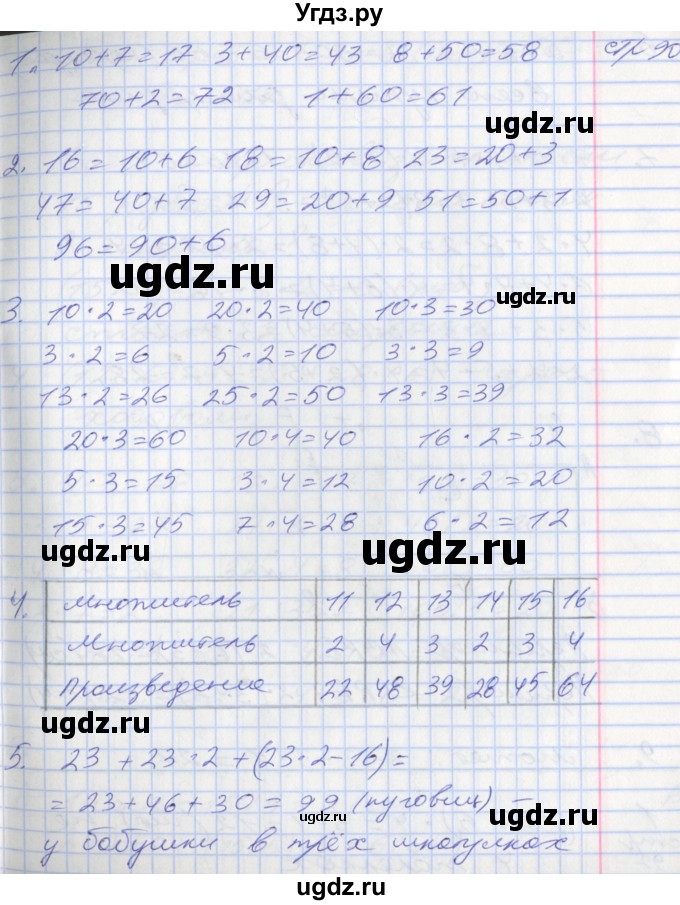 Угдз.ру
1. 10+7=17 3+40=43 8+50=58 стр 90
70+2=72 1+60=61
ugdz.ru
2. 16=10+6 18=10+8 23=20+3
47=40+7 29=20+9 51=50+1
96=90+6
ugdz.ru
ugdz.ru
3. 10·2=20 20·2=40 10·3=30
3·2=6 5·2=10 3·3=9
13·2=26 25·2=50 13·3=39
20·3=60 10·4=40 16·2=32
5·3=15 3·4=12 10·2=20
15·3=45 7·4=28 6·2=12
ugdz.ru
ugdz.ru
4. Множитель 11 12 13 14 15 16
Множитель 2 4 3 2 3 4
Произведение 22 48 39 28 45 64
ugdz.ru
5. 23+23·2+(23·2-16)=
=23+46+30=99 (пуговиц) –
ugdz.ru
у бабушки в трёх шкатулках
ugdz.ru
ugdz.ru